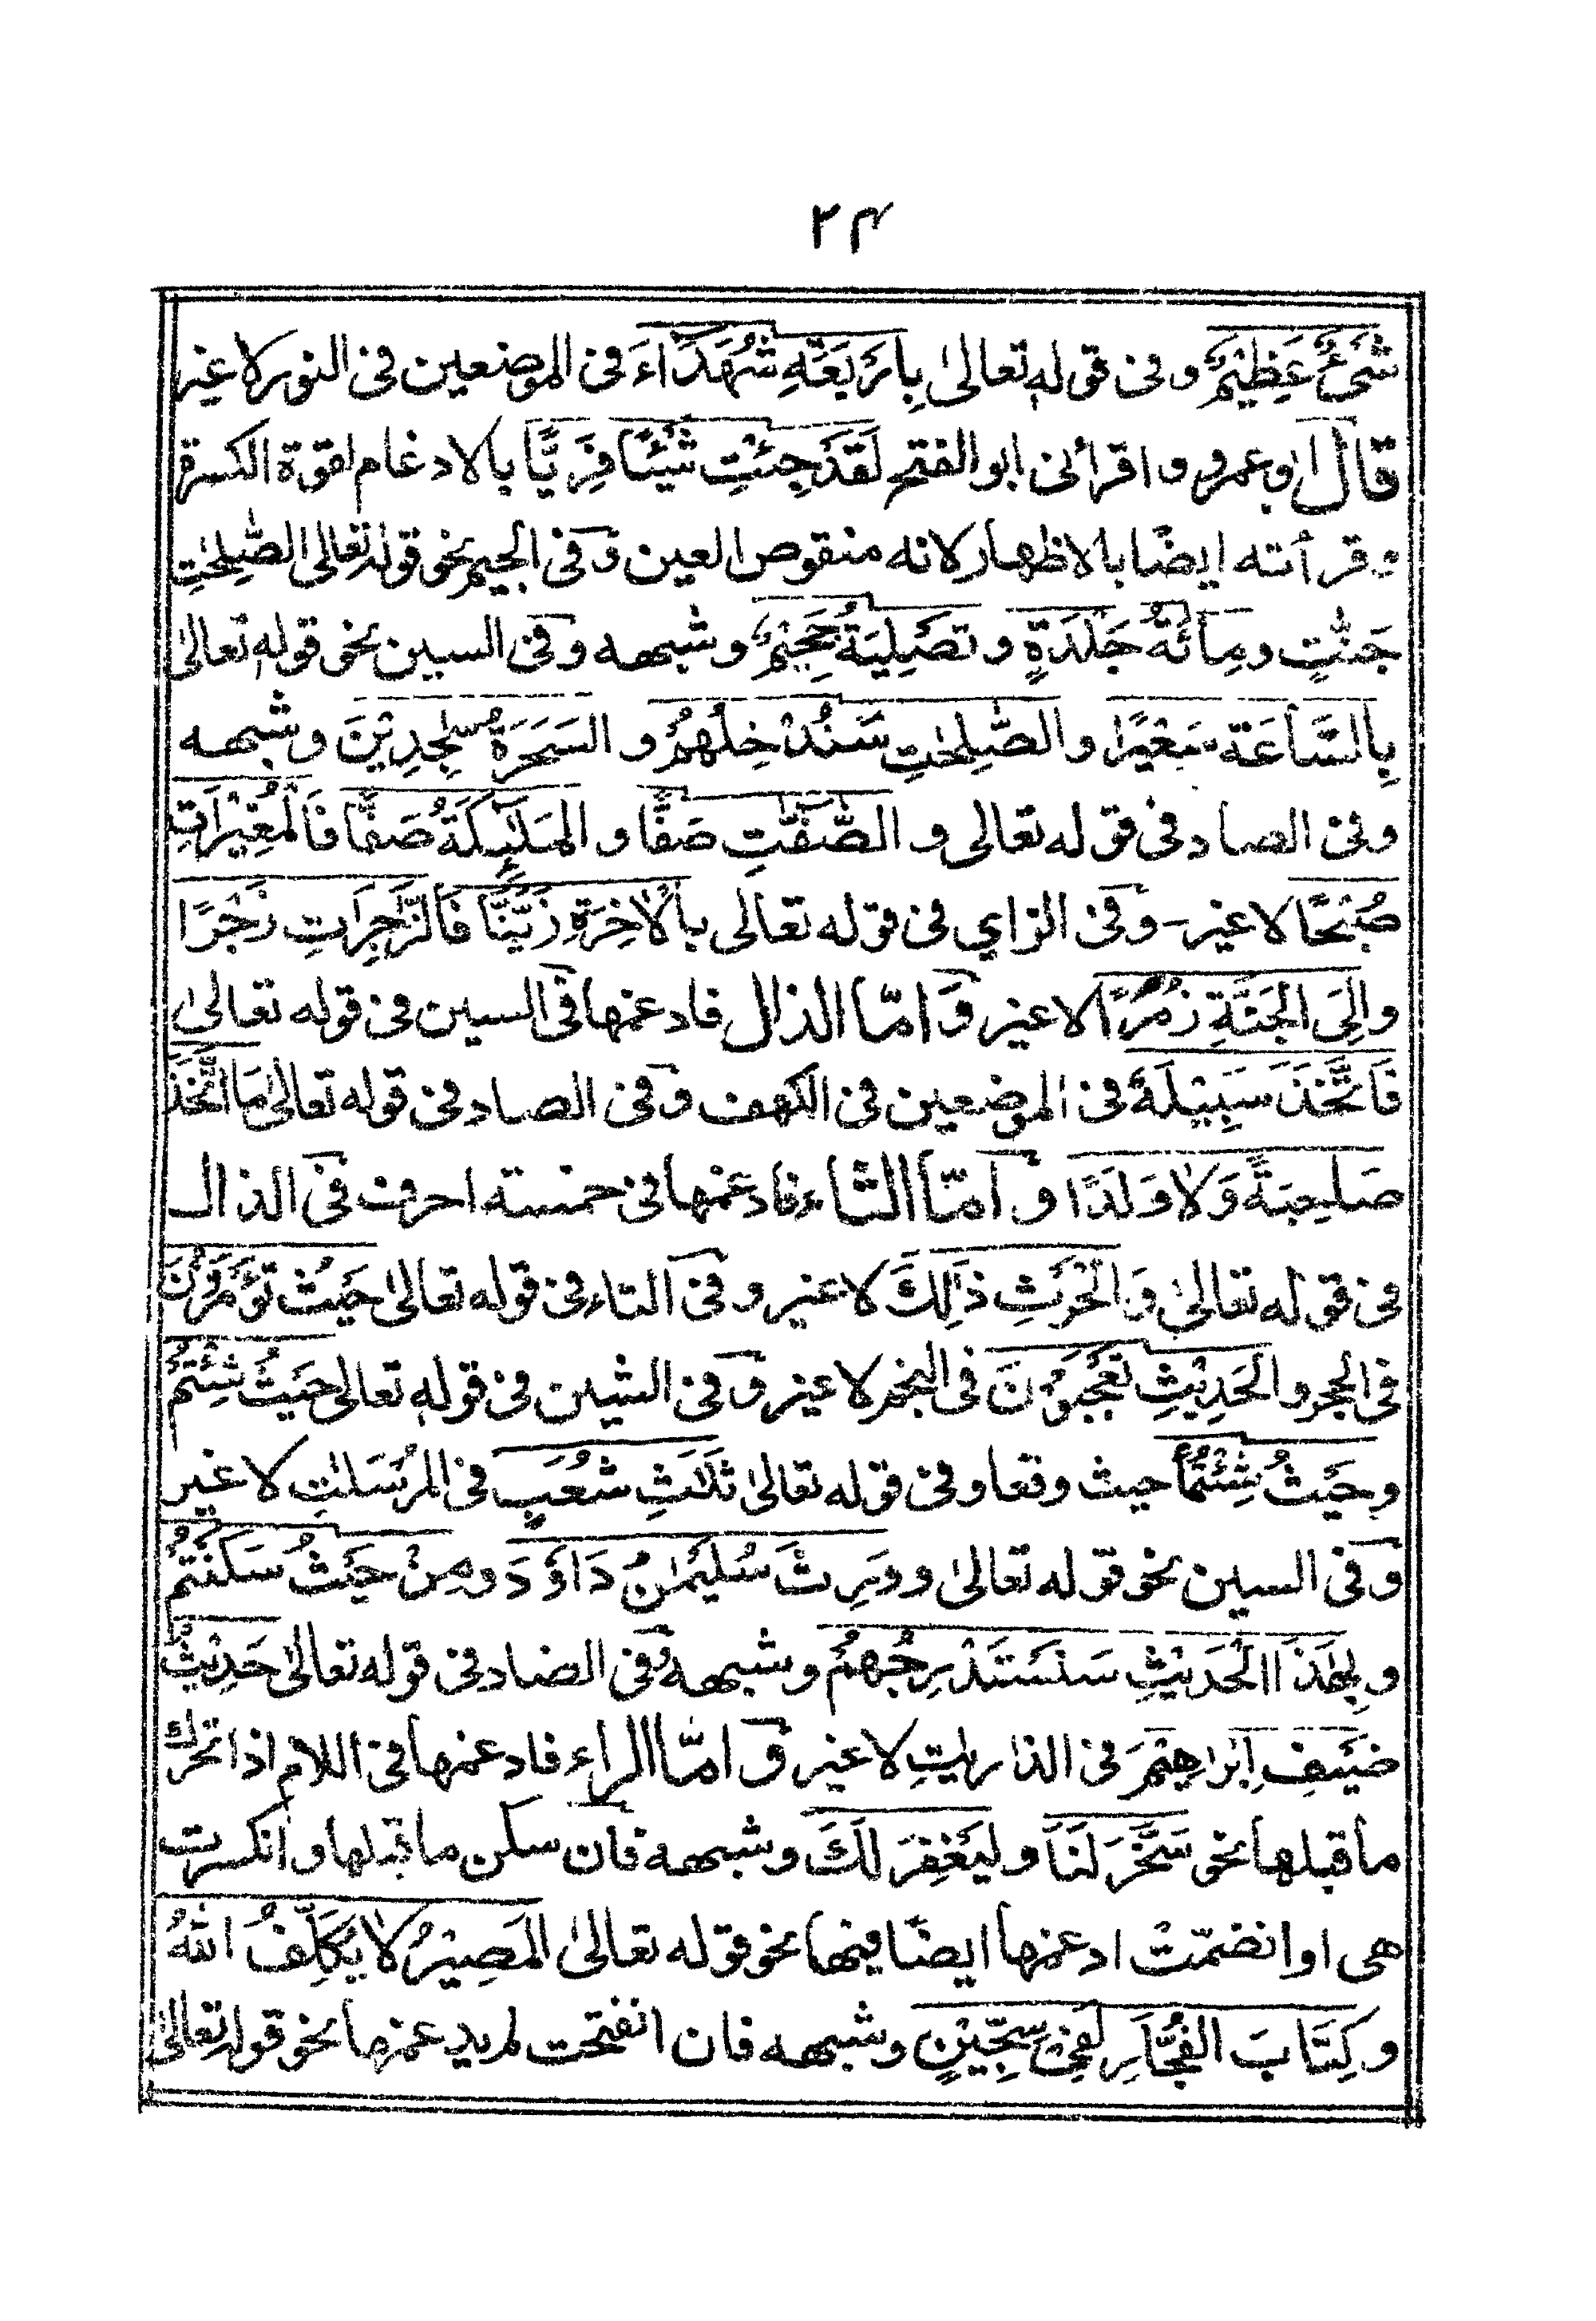 ٢٤
شَيْءٌ عَظِيْمٌ وفى قوله تعالىٰ بِاَرْبَعَةِ شُهَدَاءَ فى الموضعين فى النور لا غير
قال ابو عمرو و اقرانى ابو الفتح لَقَدْ جِئْتِ شَيْئًا فَرِيًّا بالادغام لقوة الكسرة
وقرأته ايضًا بالاظهار لانه منقوص العين وَفى الجيم نحو قوله تعالى الصّٰلِحٰتِ
جَنّٰتٍ ومِائَةُ جَلْدَةٍ وتَصْلِيَةُ جَحِيْمٍ وشبهه وَفى السين نحو قوله تعالىٰ
بِالسَّاعَةِ سَعِيْرًا والصّٰلِحٰتِ سَنُدْخِلُهُمْ و السَحَرَةُ سٰجِدِيْنَ وشبهه
وفى الصاد فى قوله تعالى و الصّٰفّٰتِ صَفًّا و المَلٰئِكَةُ صَفًّا فَالْمُغِيْرَاتِ
صُبْحًا لا غير - وَفى الزاي فى قوله تعالى بِالْاٰخِرَةِ زَيَّنَّا فَالزّٰجِرَاتِ زَجْرًا
والِىَ الجَنَّةِ زُمَرًا لا غير وَ امّا الذال فادغمها فى السين فى قوله تعالىٰ
فَاتَّخَذَ سَبِيْلَهٗ فى الموضعين فى الكهف وَفى الصاد فى قوله تعالىٰ مَا اتَّخَذَ
صَاحِبَةً وَلَا وَلَدًا و امّا الثاء فادغمها فى خمسة احرف فى الذال
فى قوله تعالىٰ وَالْحَرْثِ ذٰلِكَ لا غير و فى التاء فى قوله تعالىٰ حَيْثُ تُؤْمَرُوْنَ
فى الحجر و الحَدِيْثِ تَعْجَبُوْنَ فى النجم لا غير وَفى الشين فى قوله تعالى حَيْثُ شِئْتُمْ
وحَيْثُ شِئْتُمَا حيث وقعا وفى قوله تعالىٰ ثَلٰثِ شُعَبٍ فى المرْسَلٰتِ لا غير
وَفى السين نحو قوله تعالىٰ و وَرِثَ سُلَيْمٰنُ دَاوٗدَ ومِنْ حَيْثُ سَكَنْتُمْ
و بِهٰذَا الْحَدِيْثِ سَنَسْتَدْرِجُهُمْ وشبهه وَفى الضاد فى قوله تعالىٰ حَدِيْثُ
ضَيْفِ اِبْرَاهِيْمَ فى الذاريٰتِ لا غير وَ امّا الراء فادغمها فى اللام اذا تحرك
ما قبلها نحو سَخَّرَ لَنَا و لِيَغْفِرَ لَكَ وشبهه فان سكن ما قبلها و انكسرت
هى او انضمّتْ ادغمها ايضًا فيها نحو قوله تعالىٰ المَصِيْرُ لَا يُكَلِّفُ اللّٰهُ
و كِتَابَ الفُجَّارِ لَفِىْ سِجِّيْنٍ وشبهه فان انفتحت لم يدغمها نحو قوله تعالىٰ